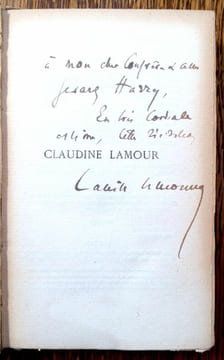 à mon cher Confrère
Gérard Harry,
En très Cordiale
estime,
CLAUDINE LAMOUR
Camille Lemonnier